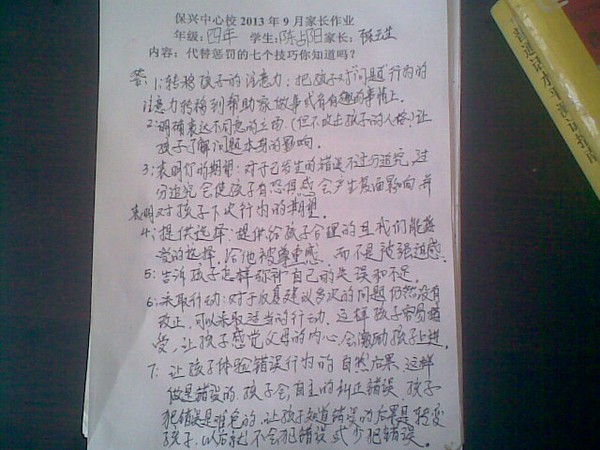 保兴中心校2013年9月家长作业
年级:四年 学生:陈占阳 家长:陈
内容:代替惩罚的七个技巧你知道吗?
答:1:转移孩子的注意力:把孩子对"问题"行为的
注意力转移到帮助家做事或有有趣的事情上。
2:明确表达不同意的立场,(但不攻击孩子的人格)让
孩子了解问题本身的影响。
3:表明你的期望:对于已发生的错误不过分追究,过
分追究会使孩子有恐惧感会产生负面影响,并
表明对孩子下次行为的期望。
4:提供选择:提供给孩子合理的且我们能接
受的选择,给他被尊重感,而不是被强迫感
5:告诉孩子怎样弥补自己的失误和不足。
6:采取行动:对于反复建议多次的问题仍然没有
改正,可以采取适当的行动,这样孩子容易接
受,让孩子感觉父母的内心,会激励孩子上进。
7:让孩子体验错误行为的自然后果,这样
做是错误的,孩子会自主的纠正错误,孩子
犯错误是难免的,让孩子知道错误的后果是转变
孩子,以后就不会犯错误或少犯错误。
普通话